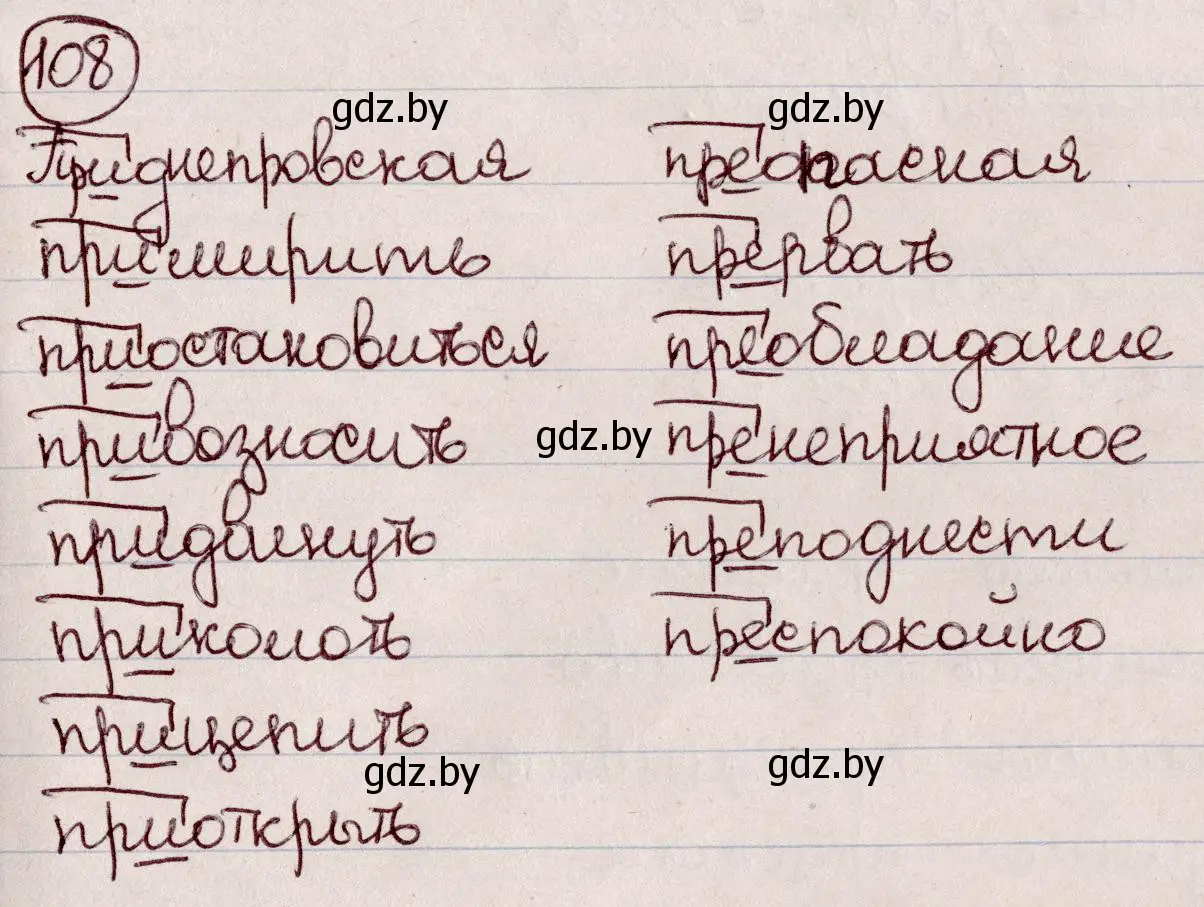 108
gdz.by gdz.by
Приднепровская преопасная
примирить прервать
приостановиться преобладание
привозносить gdz.by пренеприятное
придвинуть преподнести
приколоть преспокойно
прицепить
gdz.by gdz.by
приоткрыть